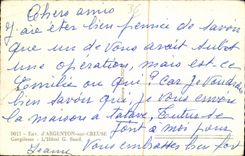 Chers amis
J'ai été bien peinée de savoir
que un de vous avait subit
une opération, mais est ce
Emilie ou qui? car je voudrais
bien savoir qui je vous envoie
la maison à
tout à mes
Vous embrasse bien fort
Jeanne
9011 - Env. d'ARGENTON-sur-CREUSE
Gargilesse - L'Hôtel G. Sand.